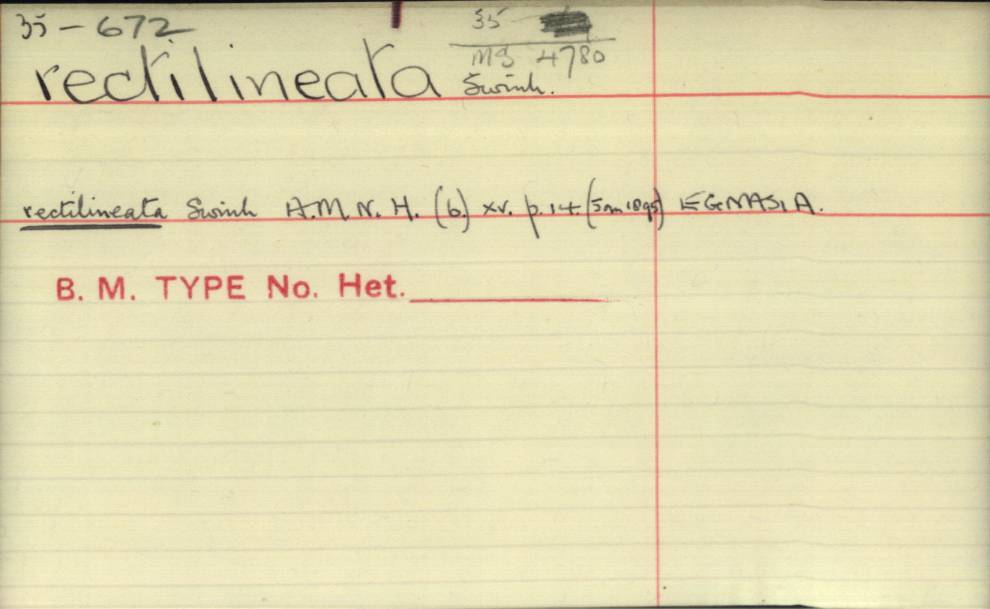 35 – 672
35
MS 4780
rectilineata Swinh.
rectilineata Swinh A.M.N.H. (6) xv. p. 14. (Jan 1895) EGNASIA.
B. M. TYPE No. Het.